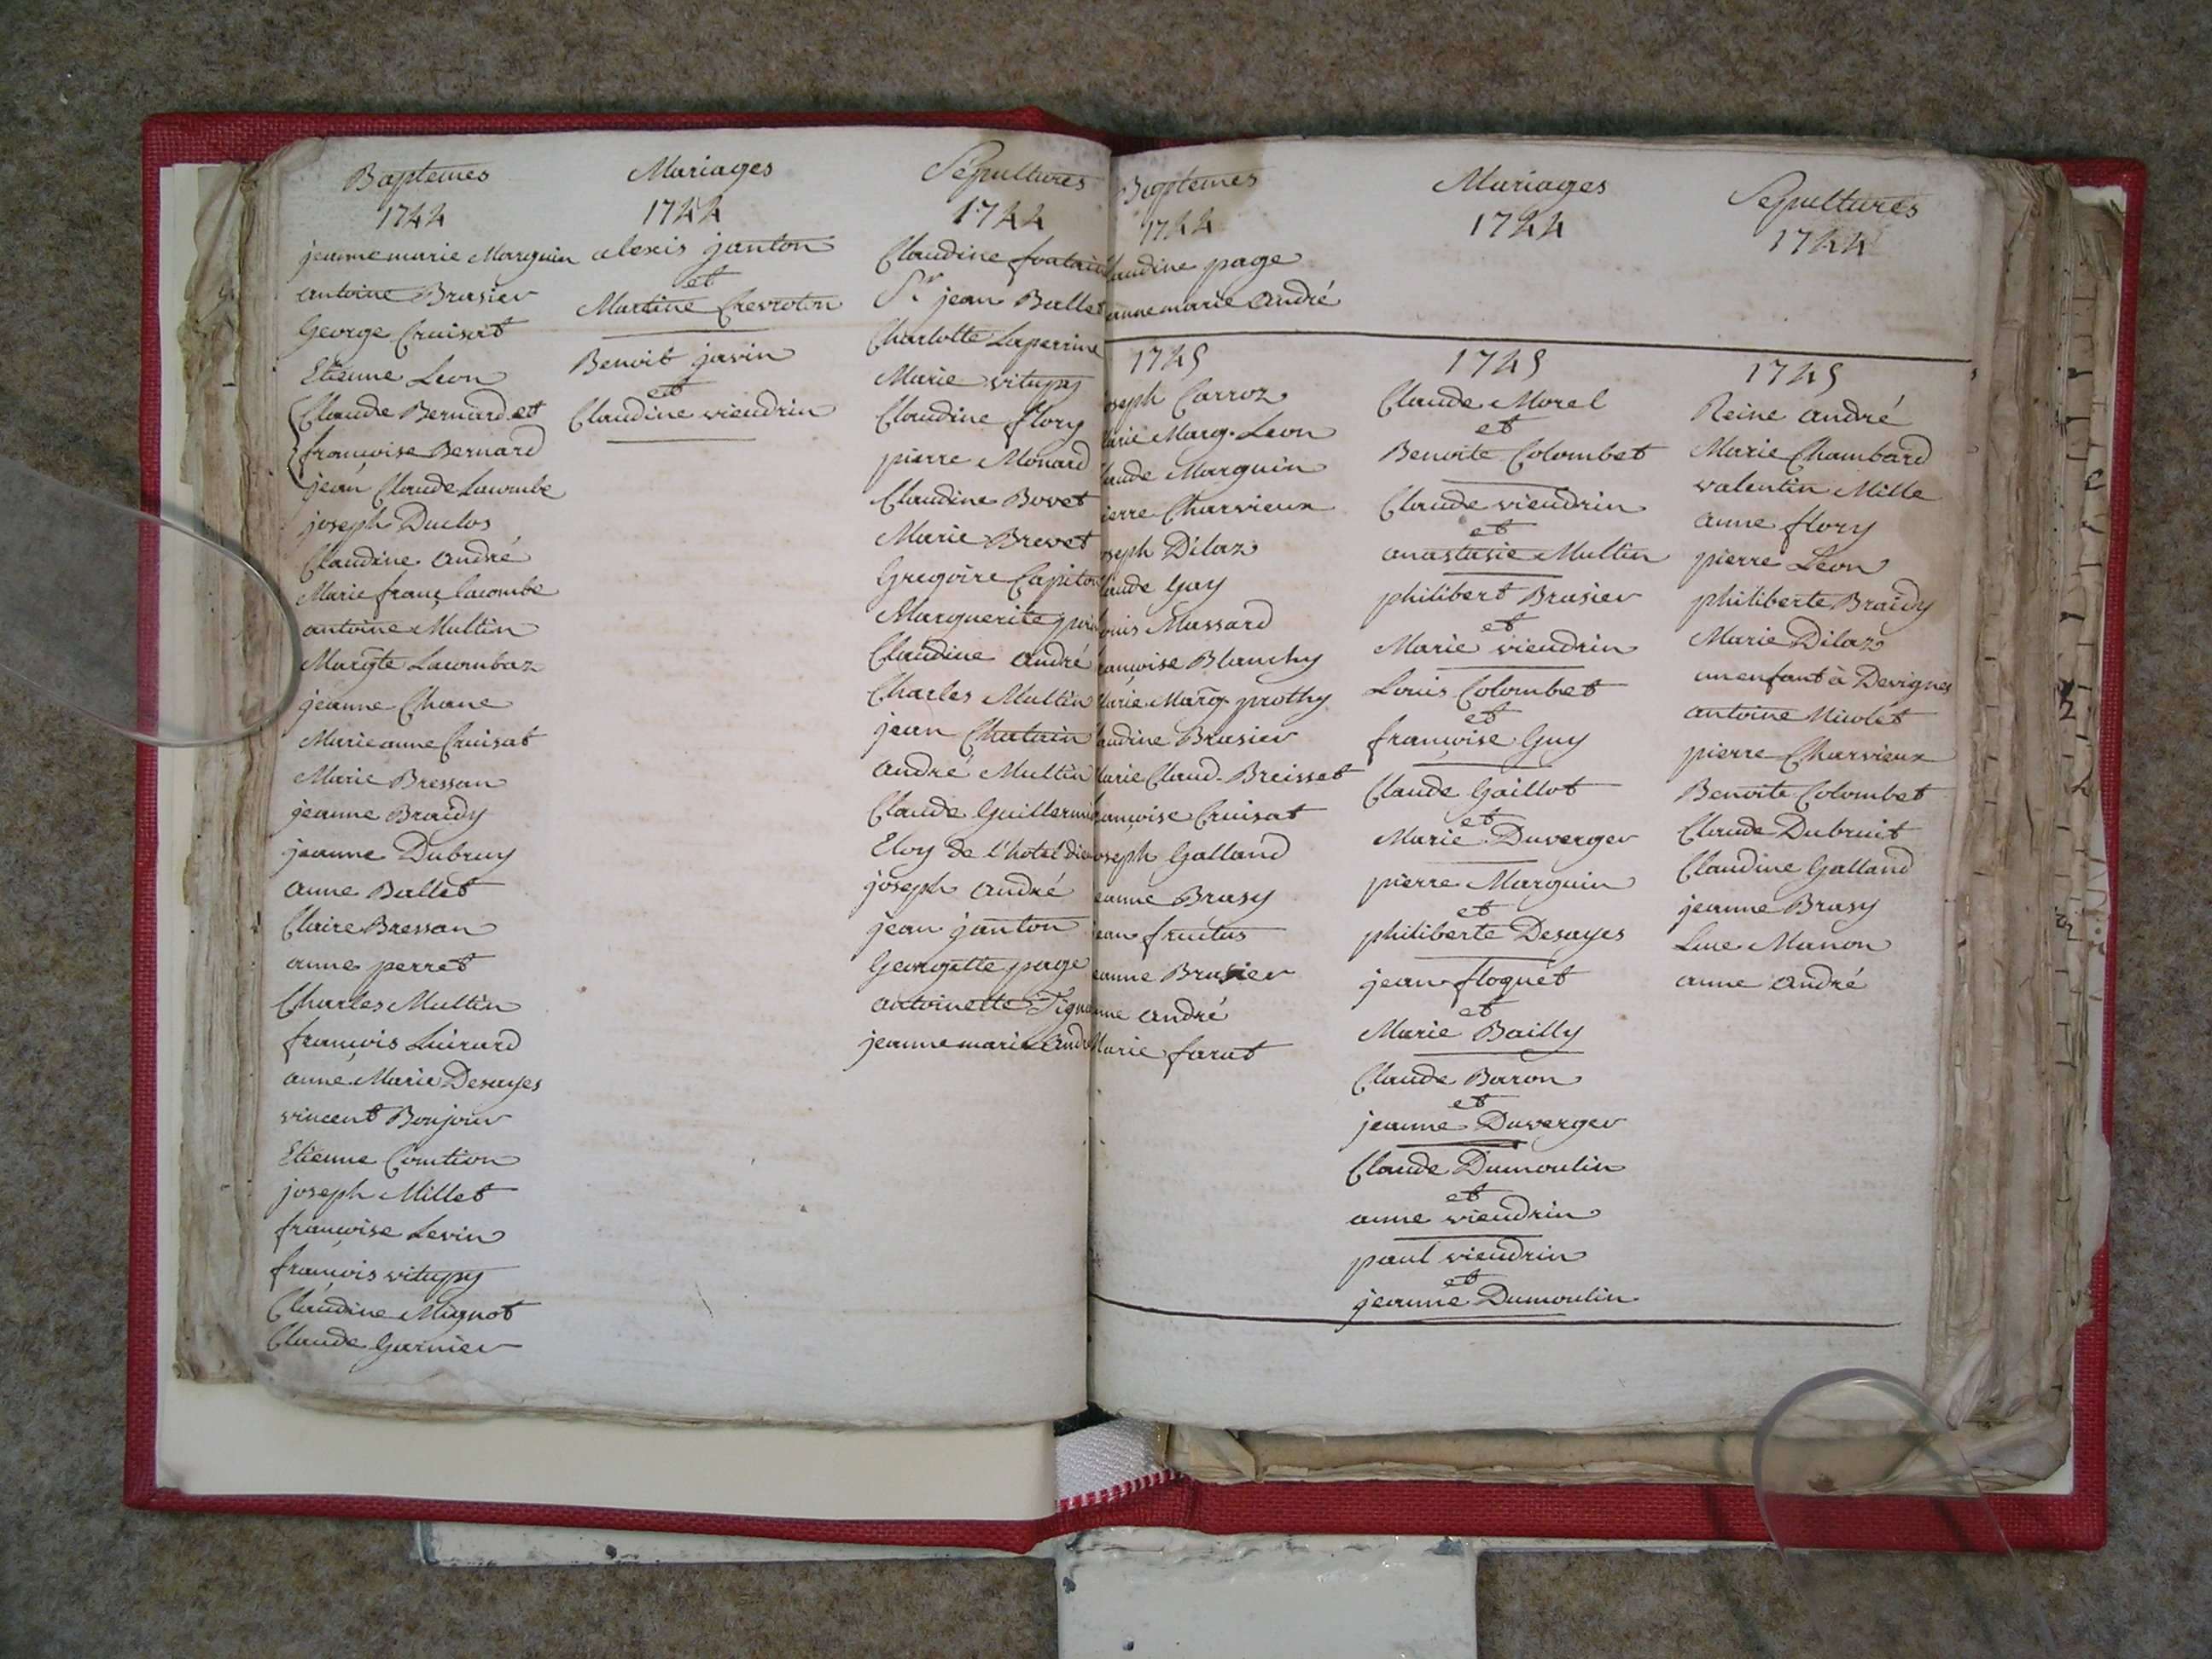 Baptemes
1744
jeanne marie Marguin
antoine Brasier
George Cruisat
Etienne Leon
Claude Bernard et
françoise Bernard
jean Claude Lacombe
joseph Duclos
Claudine andré
Marie franç lacombe
antoine Multin
Margte Lacombaz
jeanne Chane
Marie anne Cruisat
Marie Bressan
jeanne Braidy
jeanne Dubruy
anne Ballet
Claire Bressan
anne perret
Charles Multin
françois Luirard
anne Marie Desayes
vincent Bonjour
Etienne Comtion
joseph Millet
françoise Levin
françois vitupy
Claudine Mignot
Claude Garnier
Mariages
1744
alexis janton
et
Martine Chevroton
Benoit javin
et
Claudine viendrin
Sépultures
1744
Claudine
Sr jean Ballet
Charlotte Laperrine
Marie vitupy
Claudine flory
pierre Monard
Claudine Bovet
Marie Brevet
Gregoire Capiton
Marguerite
Claudine andré
Charles Multin
jean Chatain
andré Multin
Claude
Eloy de l'hotel dieu
joseph andré
jean janton
Georgette page
antoinette
jeanne marie andré
Baptemes
1744
audine page
anne marie andré
1745
oseph Carroz
arie Marg. Leon
laude Marguin
ierre Charvieux
oseph Dilaz
laude Gay
ouis Massard
ançoise Blanchy
Marie Marg. prothy
audine Brasier
Marie Claud. Breisset
ançoise Cruisat
oseph Galland
eanne Brasy
ean fructus
eanne Brasier
nne andré
Marie farat
Mariages
1744
1745
Claude Morel
et
Benoite Colombet
Claude viendrin
et
anastasie Multin
philibert Brasier
et
Marie viendrin
Louis Colombet
et
françoise Guy
Claude Gaillot
et
Marie Duverger
pierre Marguin
et
philiberte Desayes
jean floquet
et
Marie Bailly
Claude Baron
et
jeanne Duverger
Claude Dumoulin
et
anne viendrin
paul viendrin
et
jeanne Dumoulin
Sépultures
1744
1745
Reine andré
Marie Chambard
valentin Mille
anne flory
pierre Leon
philiberte Braidy
Marie Dilaz
un enfant à Devignes
antoine Nicolet
pierre Charvieux
Benoite Colombet
Claude Dubruit
Claudine Galland
jeanne Brasy
Luce Manon
anne andré